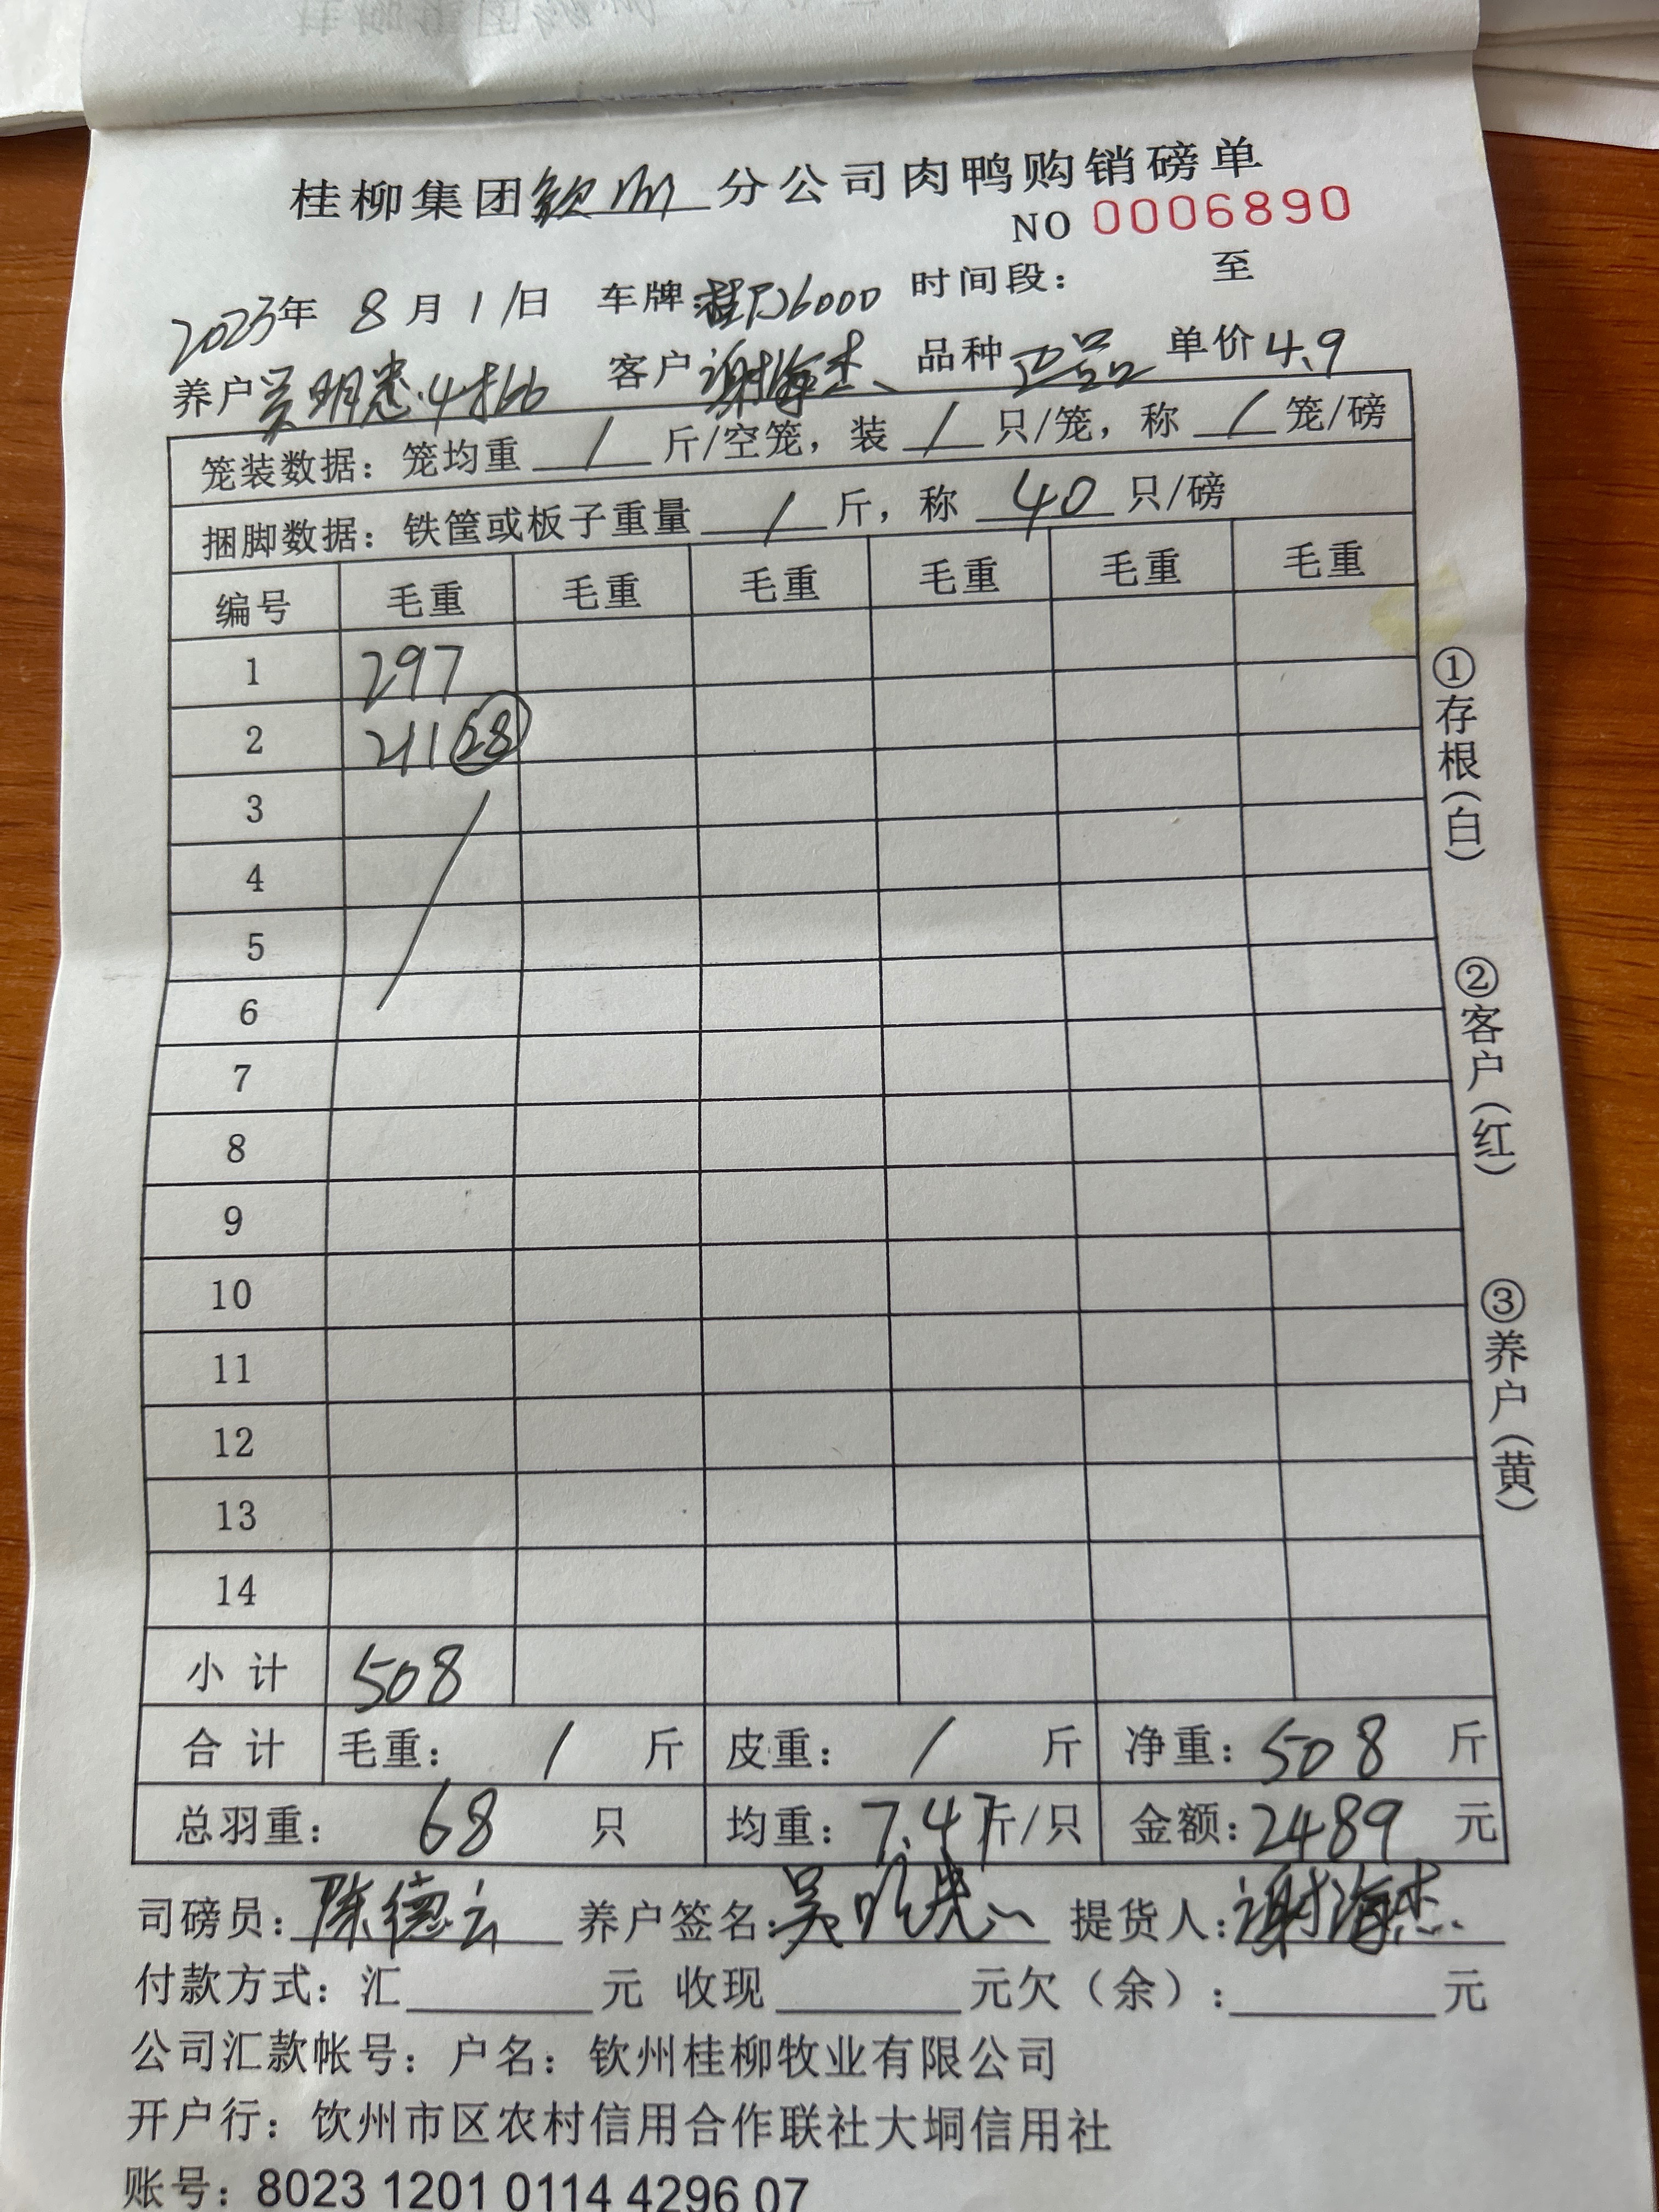 桂柳集团钦州分公司肉鸭购销磅单
NO 0006890
2023年 8月11日 车牌:桂PJ6000 时间段: 至
养户 吴明忠.4批 客户 谢海杰 品种 正品 单价 4.9
笼装数据: 笼均重 / 斤/空笼, 装 / 只/笼, 称 / 笼/磅
捆脚数据: 铁筐或板子重量 / 斤, 称 40 只/磅
编号 毛重 毛重 毛重 毛重 毛重 毛重
1 297
2 211 28
3
4
5
6
7
8
9
10
11
12
13
14
小计 508
合计 毛重: / 斤 皮重: / 斤 净重: 508 斤
总羽重: 68 只 均重: 7.47斤/只 金额: 2489 元
司磅员: 陈德云 养户签名: 吴明忠 提货人: 谢海杰
付款方式: 汇 元 收现 元欠(余): 元
公司汇款帐号: 户名: 钦州桂柳牧业有限公司
开户行: 饮州市区农村信用合作联社大垌信用社
账号: 8023 1201 0114 4296 07
①存根(白)
②客户(红)
③养户(黄)